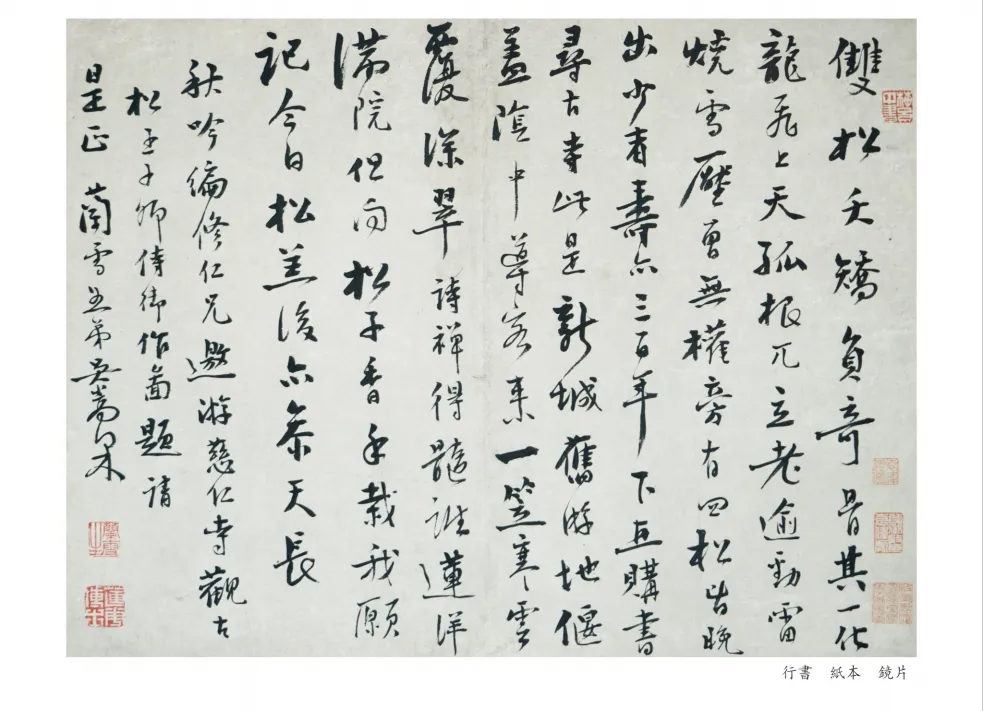 雙松夭矯負奇骨其一化
龍飛上天孤根兀立老逾勁雷
燒雪壓曾無權旁有四松皆晚
出少者壽亦三百年下直購書
尋古寺此是新城舊游地偃
蓋陰中導客來一笠寒雲
覆深翠詩禪得髓誰蓮洋
滿院但聞松子香手栽我願
記今日松羔後亦參天長
秋吟編修仁兄邀游慈仁寺觀古
松王子卿侍御作圖題請
是正 蘭雪愚弟吳嵩梁
行書 紙本 鏡片